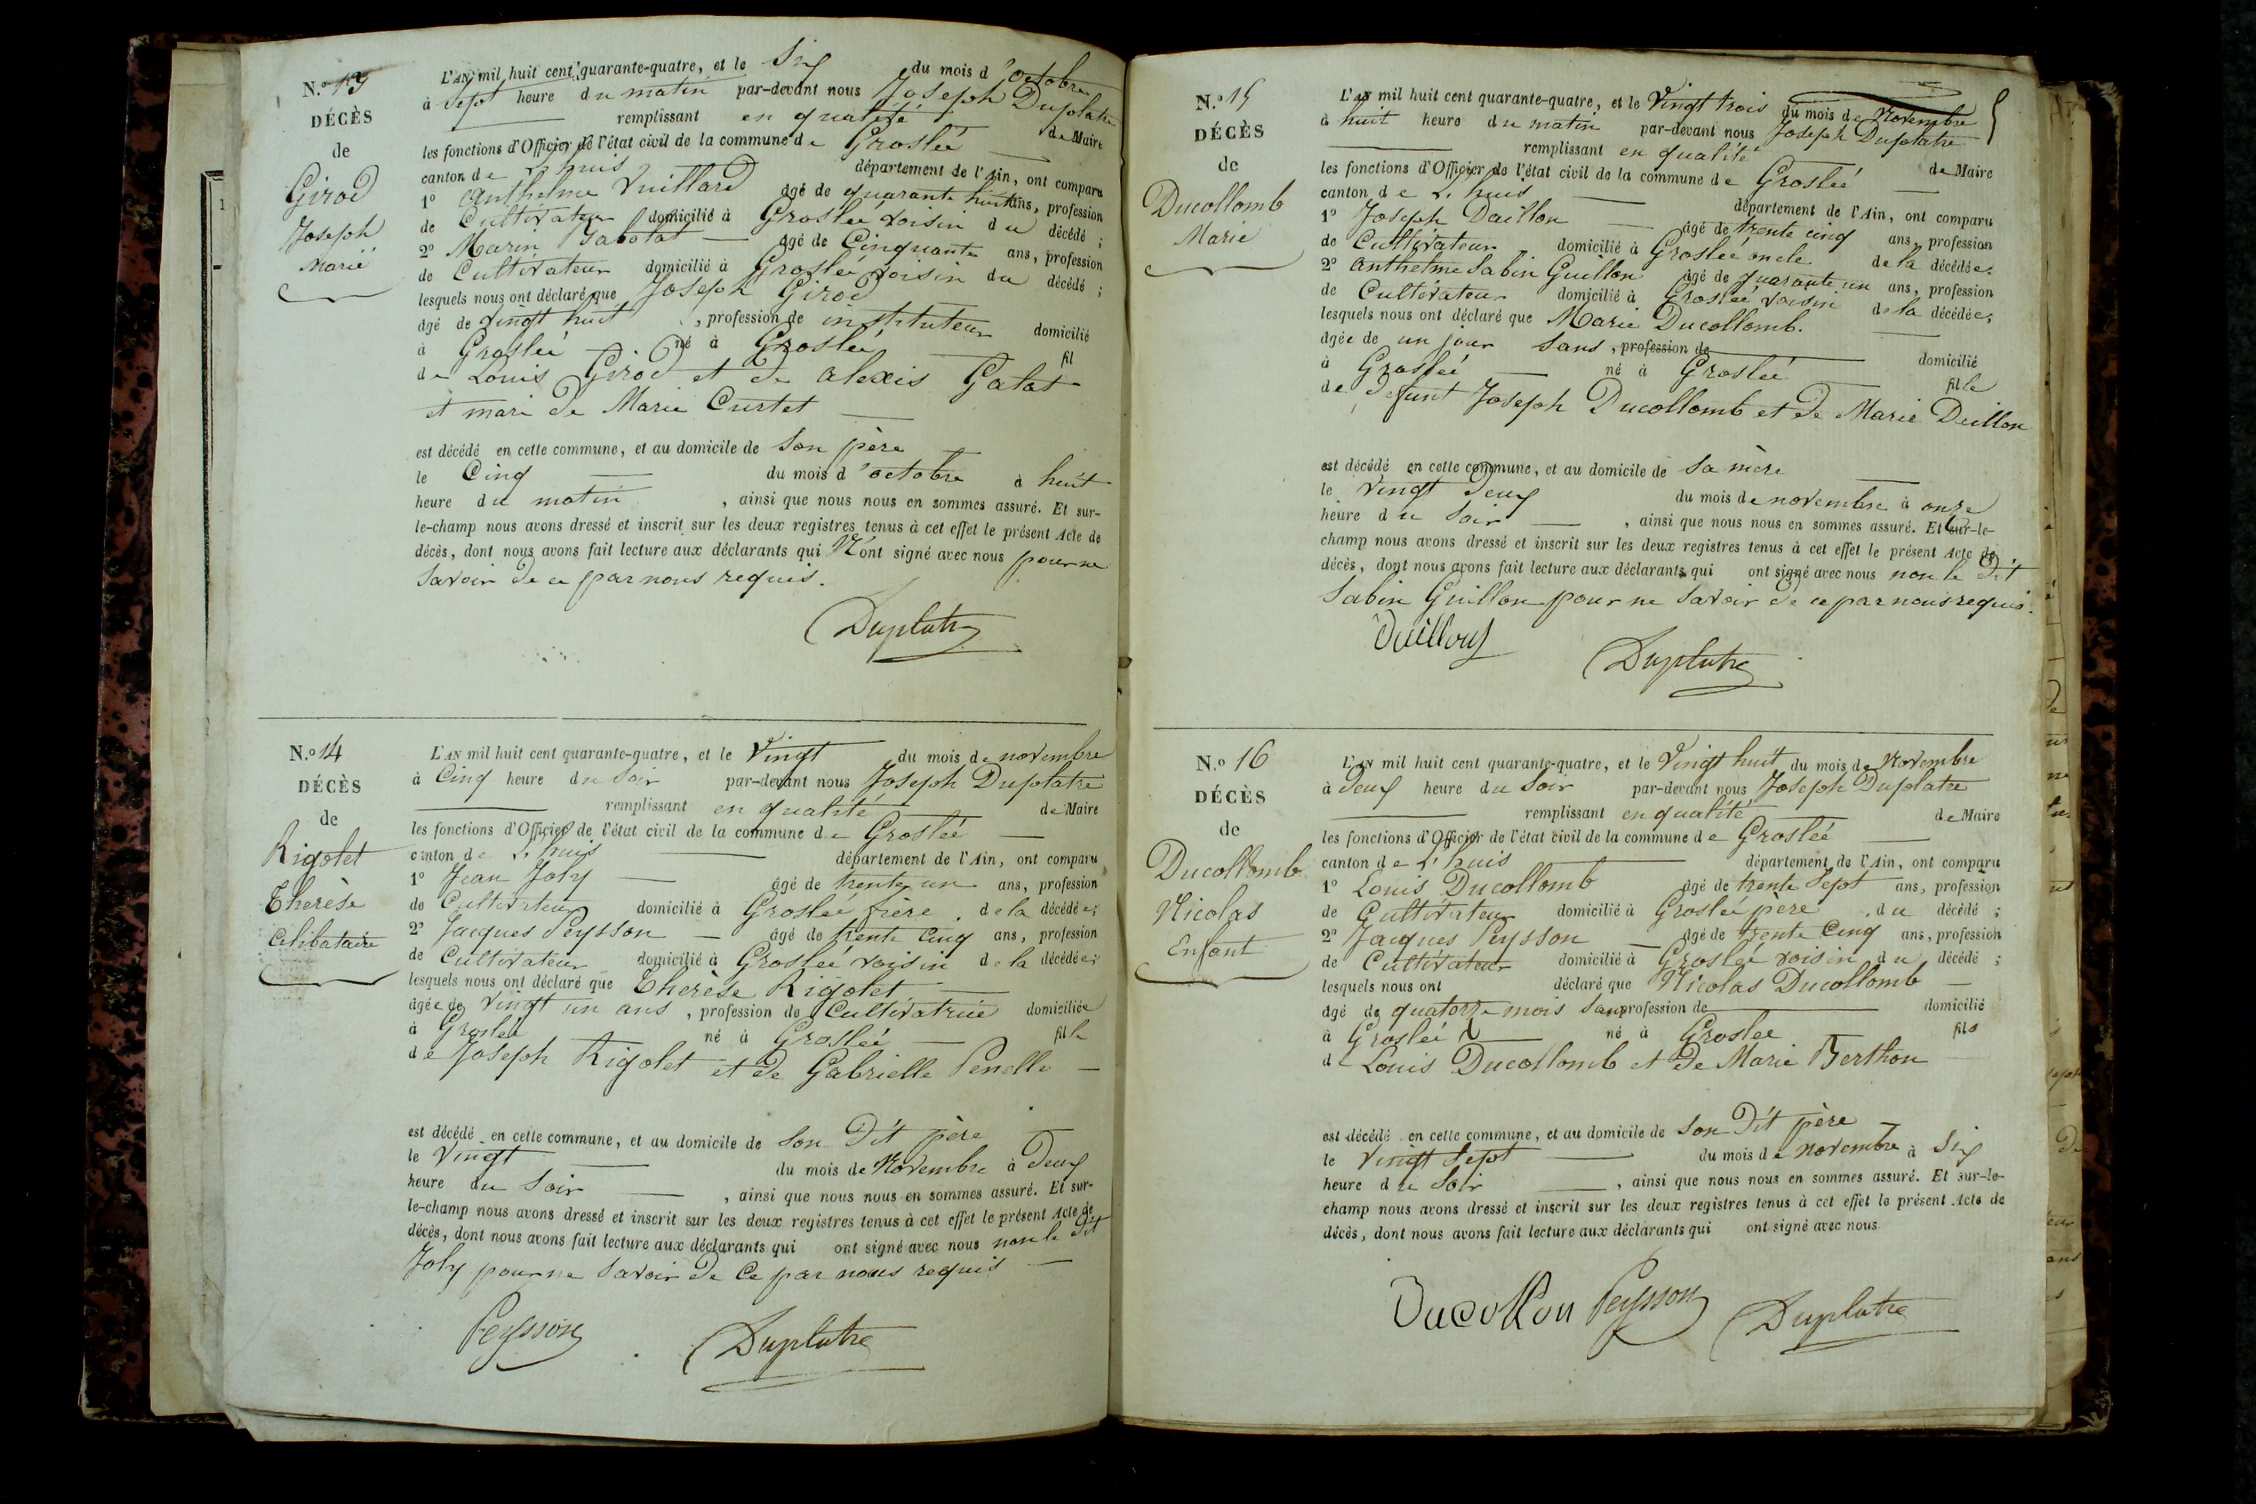 N.o 13
DÉCÈS
de
Girod
Joseph
Marié
L'AN mil huit cent quarante-quatre, et le Six du mois d'octobre
à Sept heure du matin par-devant nous Joseph Duplatre
remplissant en qualité de Maire
les fonctions d'Officier de l'état civil de la commune de Groslée
canton de L'huis département de l'Ain, ont comparu
1° Anthelme Vuillard âgé de quarante huit ans, profession
de Cultivateur domicilié à Groslée voisin du décédé ;
2° Marin Jabolat âgé de Cinquante ans, profession
de Cultivateur domicilié à Groslée voisin du décédé ;
lesquels nous ont déclaré que Joseph Girod
âgé de vingt huit , profession de instituteur domicilié
à Groslée né à Groslée fil
de Louis Girod et de alexis Galat
et mari de Marie Curtet
est décédé en cette commune, et au domicile de Son père
le Cinq du mois d'octobre à huit
heure du matin , ainsi que nous nous en sommes assuré. Et sur-
le-champ nous avons dressé et inscrit sur les deux registres tenus à cet effet le présent Acte de
décès, dont nous avons fait lecture aux déclarants qui N'ont signé avec nous pour ne
Savoir de ce par nous requis.
Duplatre
N.o 14
DÉCÈS
de
Rigolet
Therèse
Celibataire
L'AN mil huit cent quarante-quatre, et le Vingt du mois de novembre
à Cinq heure du Soir par-devant nous Joseph Duplatre
remplissant en qualité de Maire
les fonctions d'Officier de l'état civil de la commune de Groslée
canton de L'huis département de l'Ain, ont comparu
1° Jean Joly âgé de trente un ans, profession
de Cultivateur domicilié à Groslée frère de la décédée;
2° Jacques Peysson âgé de trente Cinq ans, profession
de Cultivateur domicilié à Groslée voisin de la décédée;
lesquels nous ont déclaré que Therèse Rigolet
âgée de vingt un ans , profession de Cultivatrice domiciliée
à Groslée né à Groslée fille
de Joseph Rigolet et de Gabrielle Penelle
est décédé en cette commune, et au domicile de Son Dit père
le Vingt du mois de Novembre à Deux
heure du Soir , ainsi que nous nous en sommes assuré. Et sur-
le-champ nous avons dressé et inscrit sur les deux registres tenus à cet effet le présent Acte de
décès, dont nous avons fait lecture aux déclarants qui ont signé avec nous non le dit
Joly pour ne Savoir de Ce par nous requis
Peysson Duplatre
N.o 15
DÉCÈS
de
Ducollomb
Marie
L'AN mil huit cent quarante-quatre, et le Vingt trois du mois de Novembre
à huit heure du matin par-devant nous Joseph Duplatre
remplissant en qualité de Maire
les fonctions d'Officier de l'état civil de la commune de Groslée
canton de L'huis département de l'Ain, ont comparu
1° Joseph Duillon âgé de trente cinq ans, profession
de Cultivateur domicilié à Groslée oncle de la décédée.
2° Anthelme Sabin Guillon âgé de quarante un ans, profession
de Cultivateur domicilié à Groslée voisin de la décédée;
lesquels nous ont déclaré que Marie Ducollomb.
âgée de un jour Sans , profession de domicilié
à Groslée né à Groslée fille
de defunt Joseph Ducollomb et de Marie Duillon
est décédé en cette commune, et au domicile de Sa mère
le vingt Deux du mois de novembre à onze
heure du Soir , ainsi que nous nous en sommes assuré. Et sur-le-
champ nous avons dressé et inscrit sur les deux registres tenus à cet effet le présent Acte de
décès, dont nous avons fait lecture aux déclarants qui ont signé avec nous non le Dit
Sabin Guillon pour ne Savoir de ce par nous requis.
Duillon Duplatre
N.o 16
DÉCÈS
de
Ducollomb
Nicolas
Enfant
L'AN mil huit cent quarante-quatre, et le Vingt huit du mois de Novembre
à Deux heure du Soir par-devant nous Joseph Duplatre
remplissant en qualité de Maire
les fonctions d'Officier de l'état civil de la commune de Groslée
canton de L'huis département de l'Ain, ont comparu
1° Louis Ducollomb âgé de trente Sept ans, profession
de Cultivateur domicilié à Groslée père du décédé ;
2° Jacques Peysson âgé de trente Cinq ans, profession
de Cultivateur domicilié à Groslée voisin du décédé ;
lesquels nous ont déclaré que Nicolas Ducollomb
âgé de quatorze mois Sans profession de domicilié
à Groslée né à Groslée fils
de Louis Ducollomb et de Marie Berthon
est décédé en cette commune, et au domicile de Son Dit père
le Vingt Sept du mois de novembre à Six
heure du Soir , ainsi que nous nous en sommes assuré. Et sur-le-
champ nous avons dressé et inscrit sur les deux registres tenus à cet effet le présent Acte de
décès, dont nous avons fait lecture aux déclarants qui ont signé avec nous
Ducollon Peysson Duplatre